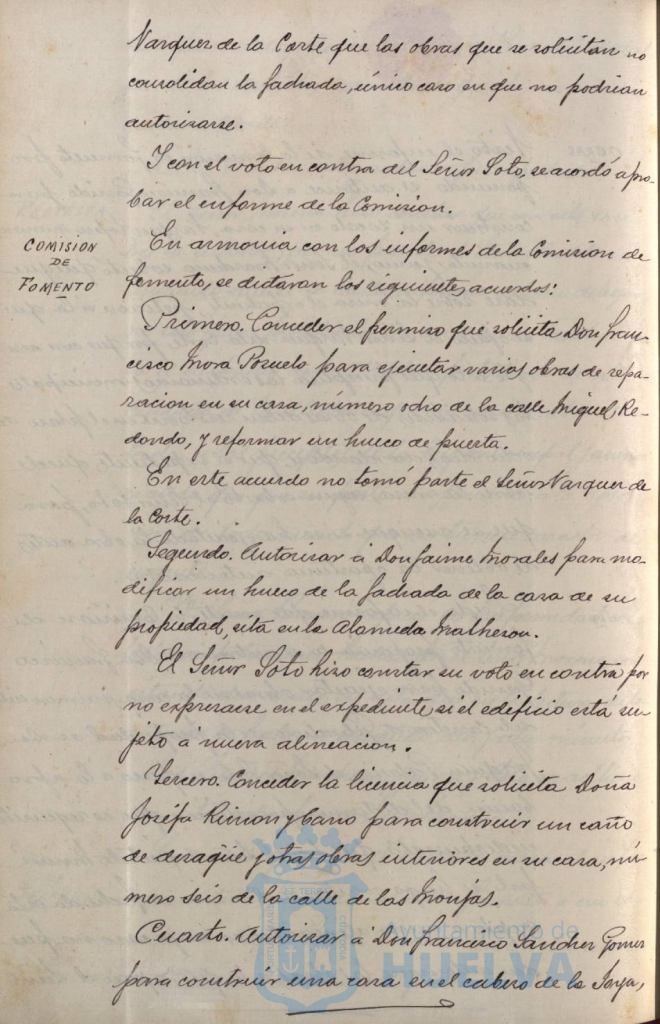 Vazquez de la Corte que las obras que se solicitan no
consolidan la fachada, único caso en que no podrian
autorizarse.
Y con el voto en contra del Señor Soto, se acordó apro-
bar el informe de la Comision.
COMISION
DE
FOMENTO
En armonia con los informes de la Comision de
fomento, se dictaron los siguientes acuerdos:
Primero. Conceder el permiso que solicita Don Fran-
cisco Mora Pozuelo para ejecutar varias obras de repa-
racion en su casa, número ocho de la calle Miguel Re-
dondo, y reformar un hueco de puerta.
En este acuerdo no tomó parte el Señor Vazquez de
la Corte.
Segundo. Autorizar á Don Jaime Morales para mo-
dificar un hueco de la fachada de la casa de su
propiedad, sita en la Alameda Matheson.
El Señor Soto hizo constar su voto en contra por
no expresarse en el expediente si el edificio está su-
jeto á nueva alineacion.
Tercero. Conceder la licencia que solicita Doña
Joséfa Rincon y Cano para construir un caño
de desagüe y otras obras interiores en su casa, nú-
mero seis de la calle de las Monjas.
Cuarto. Autorizar á Don Francisco Sanchez Gomez
para construir una casa en el cabezo de la Joya,
Ayuntamiento de
HUELVA